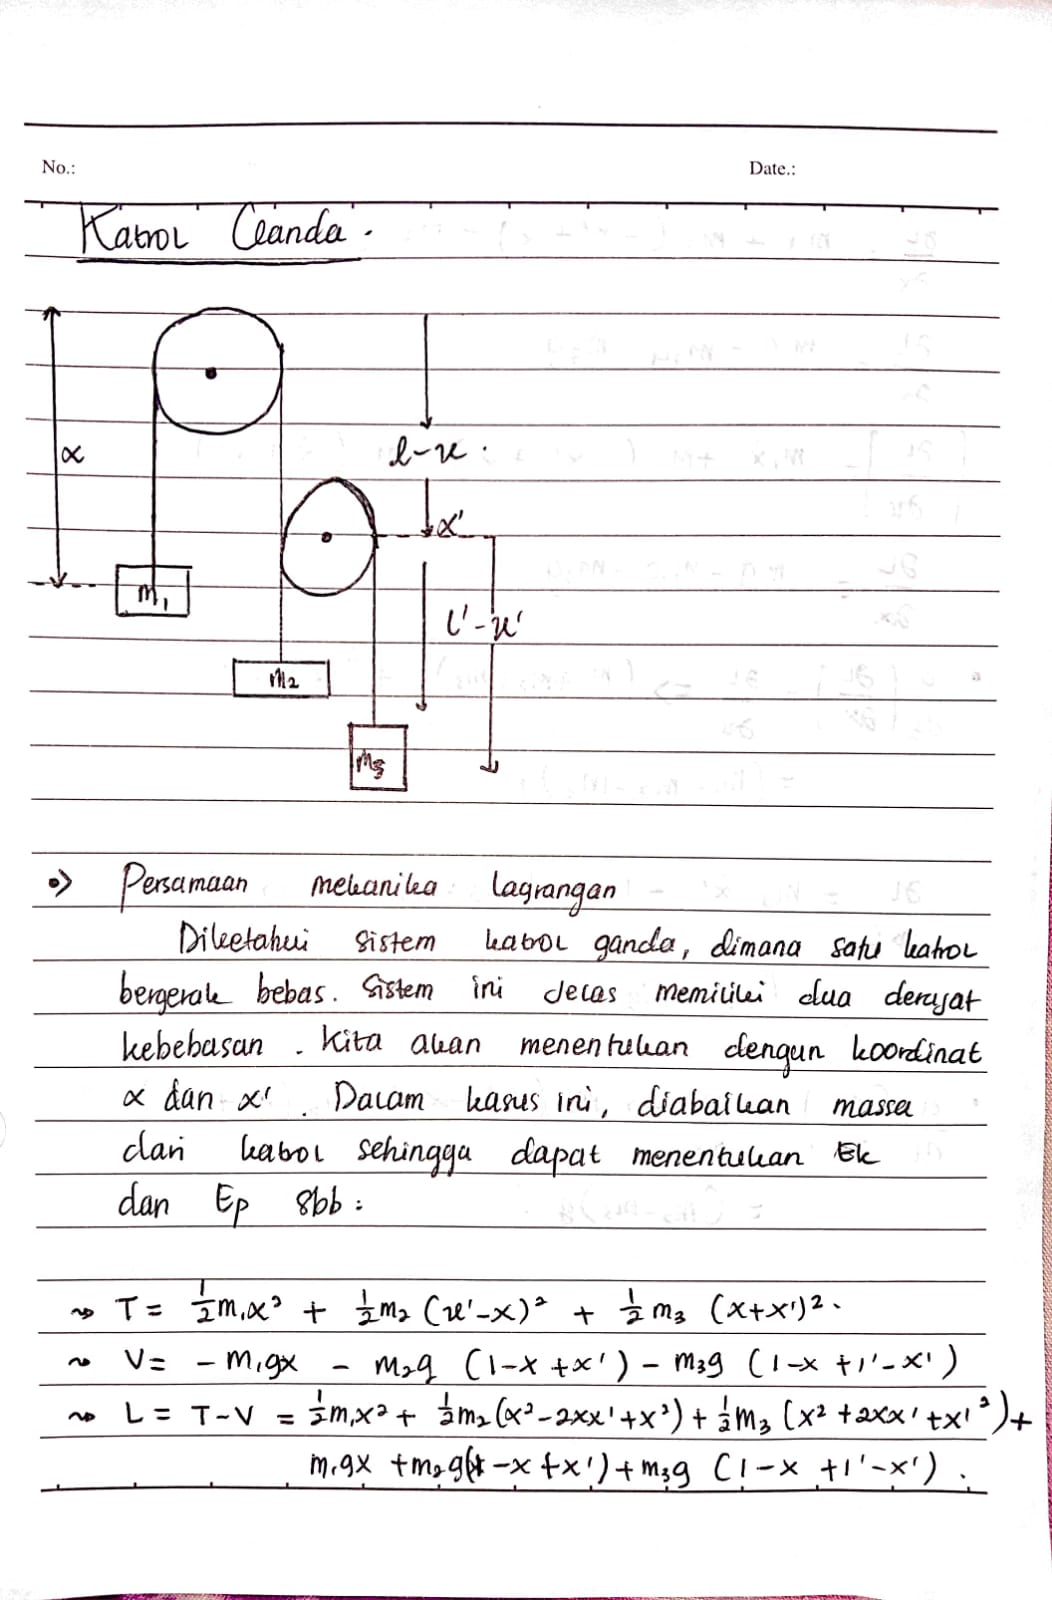 No.:
Date.:
Katrol Ganda.
x
l-x.
x'
l'-x'
m₁
m₂
m₃
•> Persamaan mekanika lagrangan
Diketahui sistem katrol ganda, dimana satu katrol
bergerak bebas. Sistem ini jelas memiliki dua derajat
kebebasan. Kita akan menentukan dengan koordinat
x dan x'. Dalam kasus ini, diabaikan massa
dari katrol sehingga dapat menentukan Ek
dan Ep sbb:
~> T = ½m₁x² + ½m₂ (x'-x)² + ½m₃ (x+x')².
~ V = - m₁gx - m₂g (l-x+x') - m₃g (l-x+l'-x')
~> L = T-V = ½m₁x² + ½m₂(x²-2xx'+x²) + ½m₃ (x²+2xx'+x'²) +
m₁gx + m₂g(l-x+x') + m₃g (l-x+l'-x').